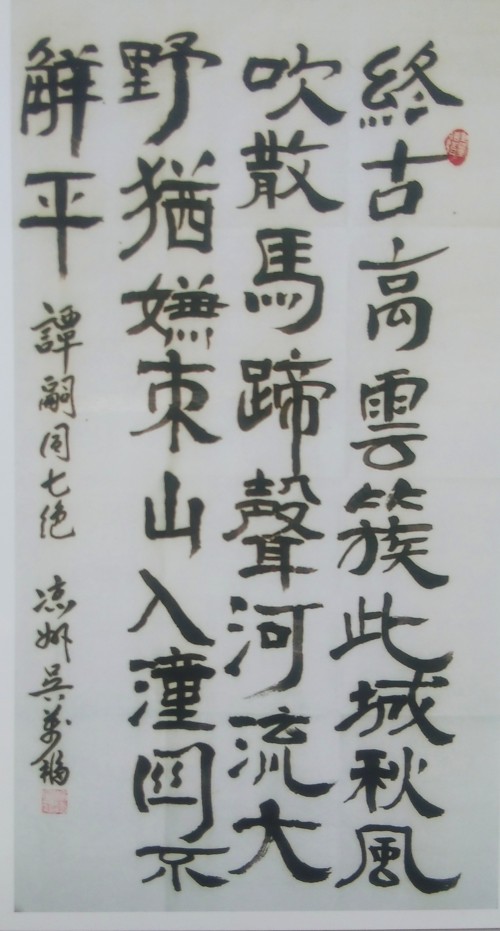 終古高雲簇此城秋風
吹散馬蹄聲河流大
野猶嫌束山入潼關不
解平
譚嗣同七绝 凉州吴萬福